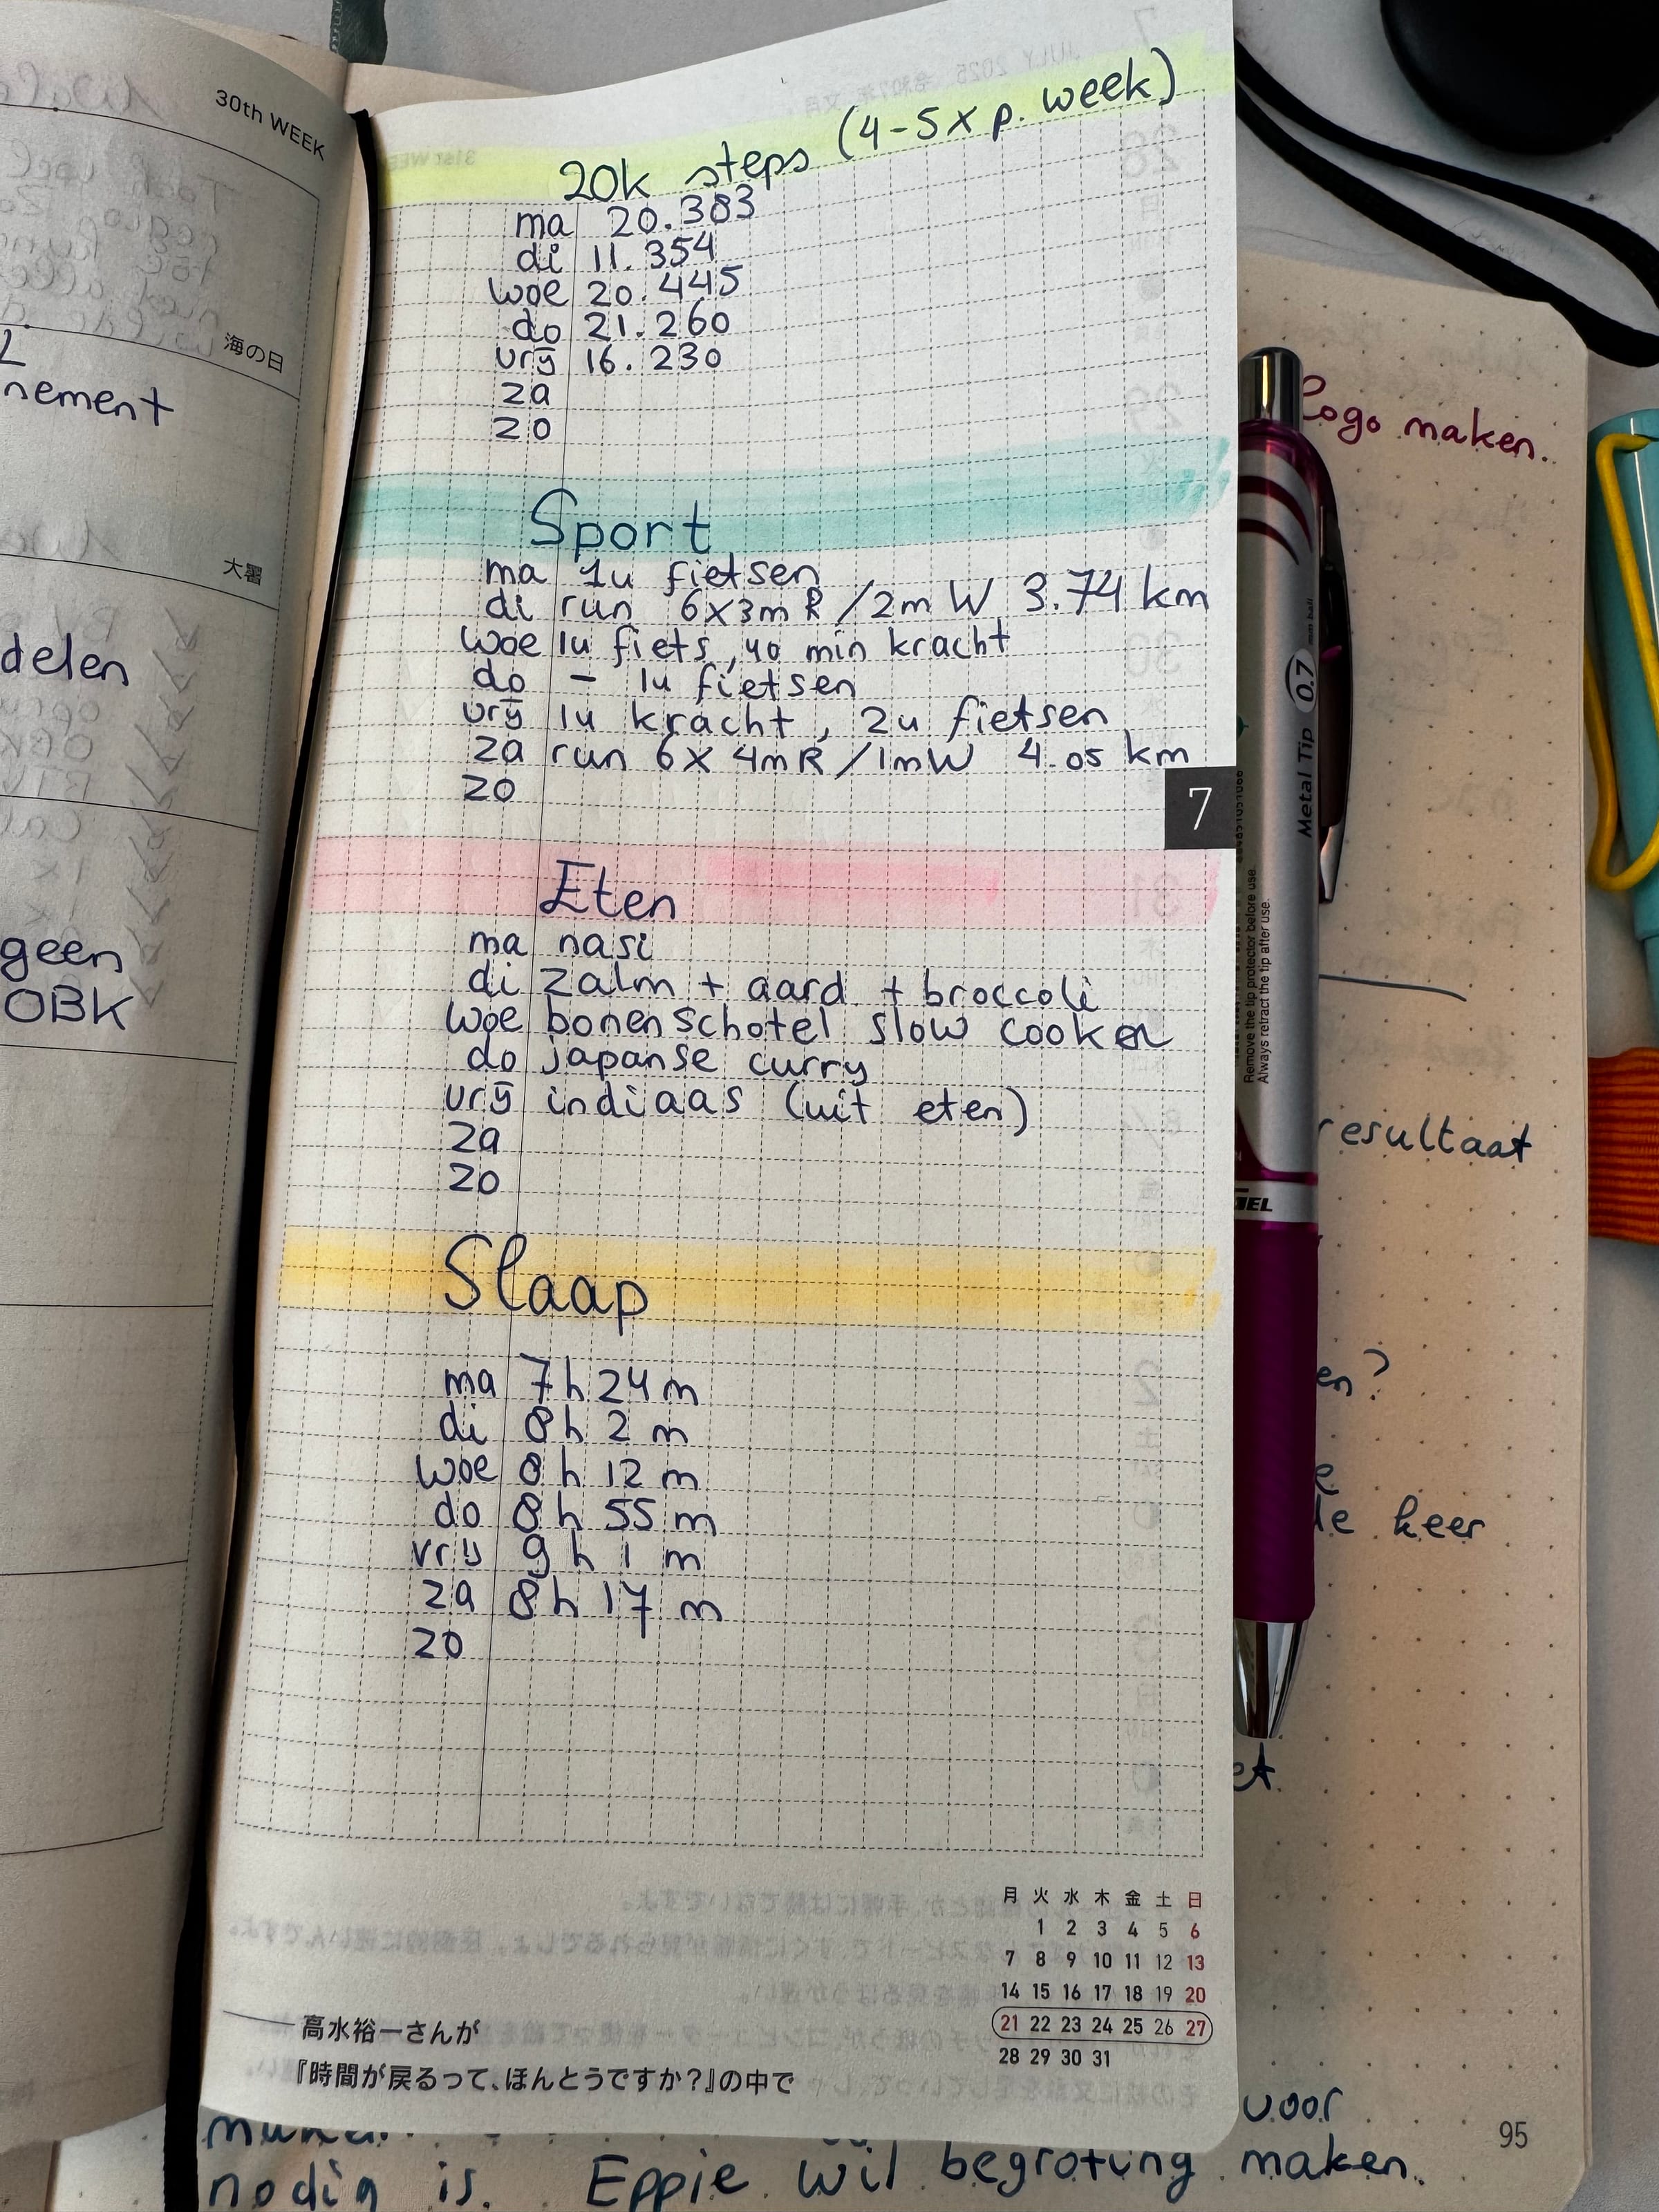 30th WEEK
海の日
nement
大暑
delen
geen
OBK
20k steps (4-5x p. week)
ma 20.383
di 11.354
woe 20.445
do 21.260
vrij 16.230
za
zo
Sport
ma 1u fietsen
di run 6x3m R/2m W 3.74 km
woe 1u fiets, 40 min kracht
do - 1u fietsen
vrij 1u kracht, 2u fietsen
za run 6x 4mR/1mW 4.05 km
zo
7
Eten
ma nasi
di zalm + aard. + broccoli
woe bonenschotel slow cooker
do japanse curry
vrij indiaas (uit eten)
za
zo
Slaap
ma 7h 24m
di 8h 2m
woe 8h 12m
do 8h 55m
vrij 9h 1m
za 8h 17m
zo
月 火 水 木 金 土 日
1 2 3 4 5 6
7 8 9 10 11 12 13
14 15 16 17 18 19 20
21 22 23 24 25 26 27
28 29 30 31
高水裕一さんが
『時間が戻るって、ほんとうですか?』の中で
Logo maken.
Metal Tip 0.7 mm ball
Remove the tip protector before use.
Always retract the tip after use.
resultaat
en?
keer
voor
95
nodig is. Eppie wil begroting maken.